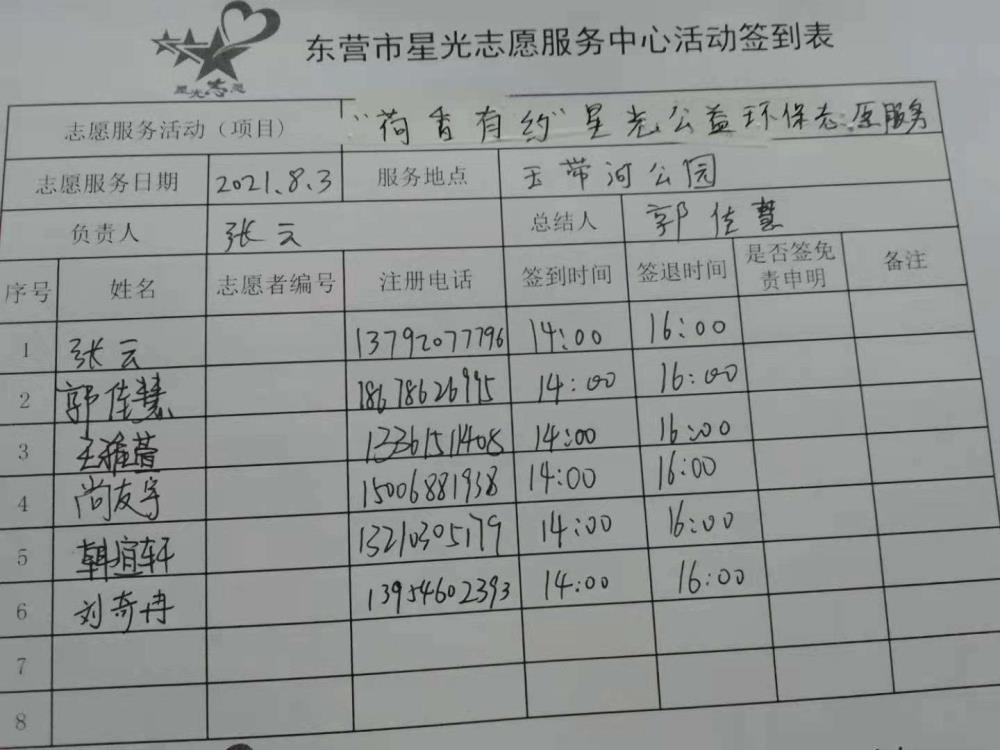 星光志愿
东营市星光志愿服务中心活动签到表
志愿服务活动（项目） "荷香有约"星光公益环保志愿服务
志愿服务日期 2021.8.3 服务地点 玉带河公园
负责人 张云 总结人 郭佳慧
序号 姓名 志愿者编号 注册电话 签到时间 签退时间 是否签免责申明 备注
1 张云 13792077796 14:00 16:00
2 郭佳慧 14:00 16:00
3 王雅萱 13361511408 14:00 16:00
4 尚友宇 15006881938 14:00 16:00
5 韩谊轩 13210305179 14:00 16:00
6 刘奇冉 13954602393 14:00 16:00
7
8